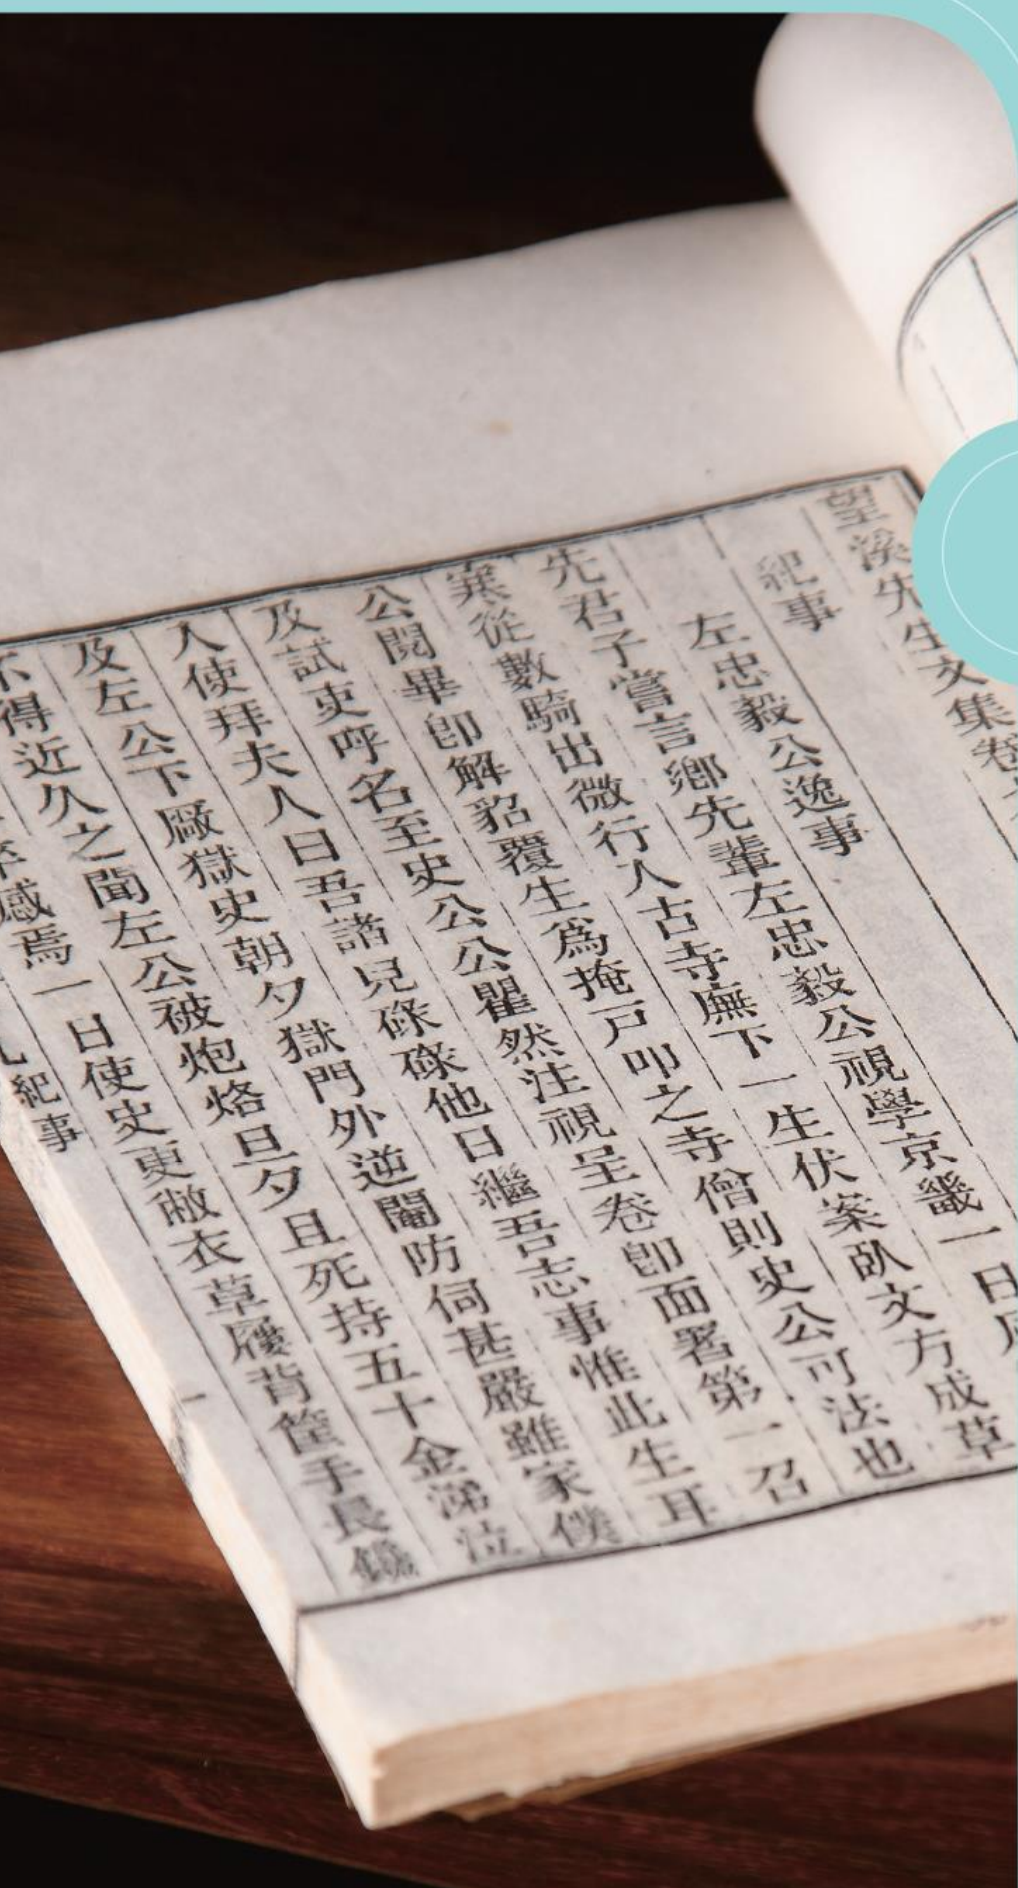 望溪先生文集卷
紀事
左忠毅公逸事
先君子嘗言鄉先輩左忠毅公視學京畿一日
寒從數騎出微行入古寺廡下一生伏案臥文方成草
公閱畢卽解貂覆生爲掩戸叩之寺僧則史公可法也
及試吏呼名至史公公瞿然注視呈卷卽面署第一召
入使拜夫人曰吾諸兒碌碌他日繼吾志事惟此生耳
及左公下厰獄史朝夕獄門外逆閹防伺甚嚴雖家僕
不得近久之聞左公被炮烙旦夕且死持五十金涕泣
感焉一日使史更敝衣草屨背筐手長鑱
紀事
一